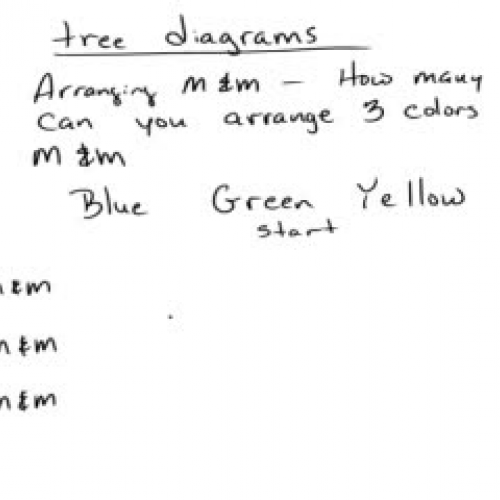 tree diagrams
Arranging m &m - How many
Can you arrange 3 colors
m &m
Blue Green Yellow
start
&m
&m
&m